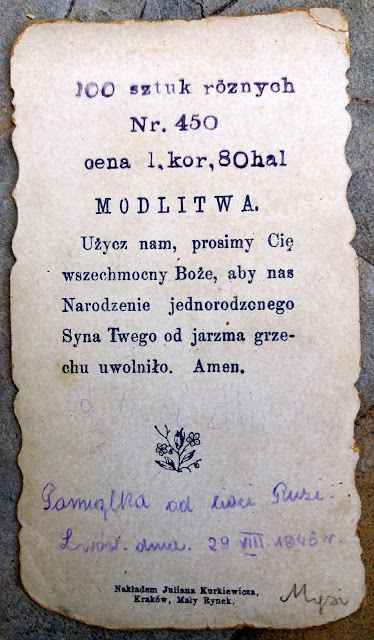 100 sztuk różnych
Nr. 450
cena 1.kor,80hal
MODLITWA.
Użycz nam, prosimy Cię
wszechmocny Boże, aby nas
Narodzenie jednorodzonego
Syna Twego od jarzma grze-
chu uwolniło. Amen.
Pamiątka od cioci Rusi.
Lwów. dnia. 29 VIII 1943 r.
Nakładem Juliana Kurkiewicza,
Kraków, Mały Rynek.